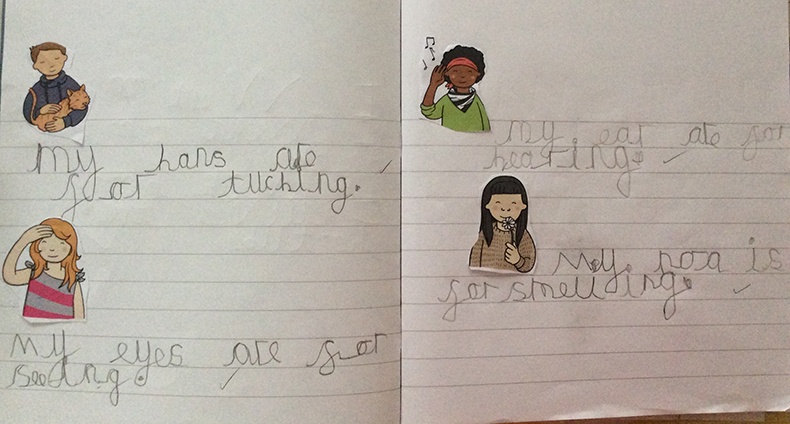 My hans are
for tuching.
My eyes are for
seeing.
My ear are for
hearing.
My nosa is
for smelling.